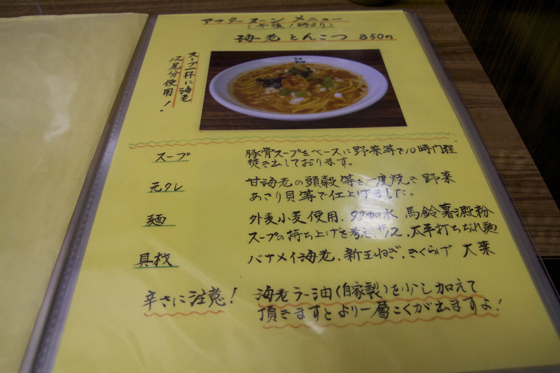 アフターヌーン メニュー
(午後1時より)
海老とんこつ 850円
スープ一杯に海老
12尾分
使用!
スープ
豚骨スープをベースに野菜等で10時間程
焚き出しております。
元タレ
甘海老の頭殻等を一度焼き野菜
あさり貝等で仕上げました。
麺
外麦小麦使用、多加水 馬鈴薯澱粉
スープの持ち上げを考え 太平打ちちぢれ麺
具材
バナメイ海老、新玉ねぎ、きくらげ 大葉
辛さに注意!
海老ラー油(自家製)を少し加えて
頂きますとより一層こくが出ますよ!